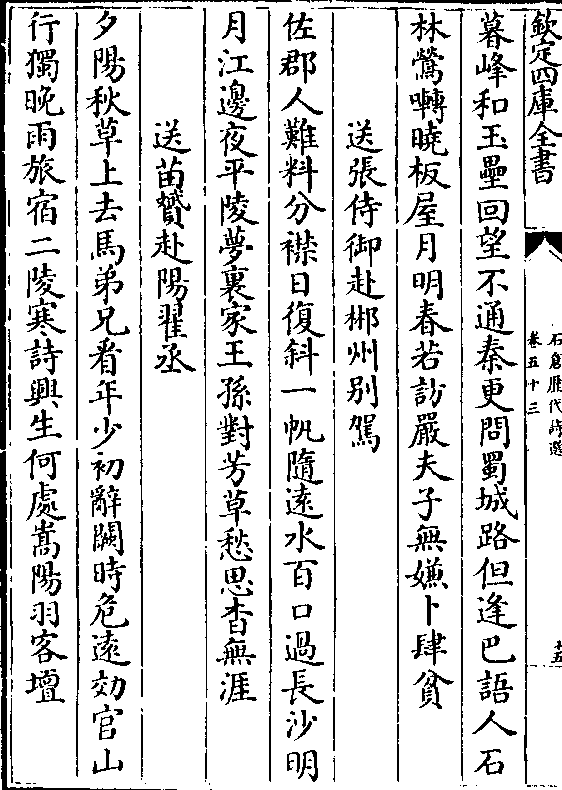 欽定四庫全書
石倉歴代詩選
卷五十三
十五
暮峰和玉壘回望不通秦更問蜀城路但逢巴語人石
林鶯囀曉板屋月明春若訪嚴夫子無嫌卜肆貧
送張侍御赴郴州别駕
佐郡人難料分襟日復斜一帆隨遠水百口過長沙明
月江邊夜平陵夢裏家王孫對芳草愁思杳無涯
送苗贊赴陽翟丞
夕陽秋草上去馬弟兄看年少初辭闕時危遠効官山
行獨晚雨旅宿二陵寒詩興生何處嵩陽羽客壇